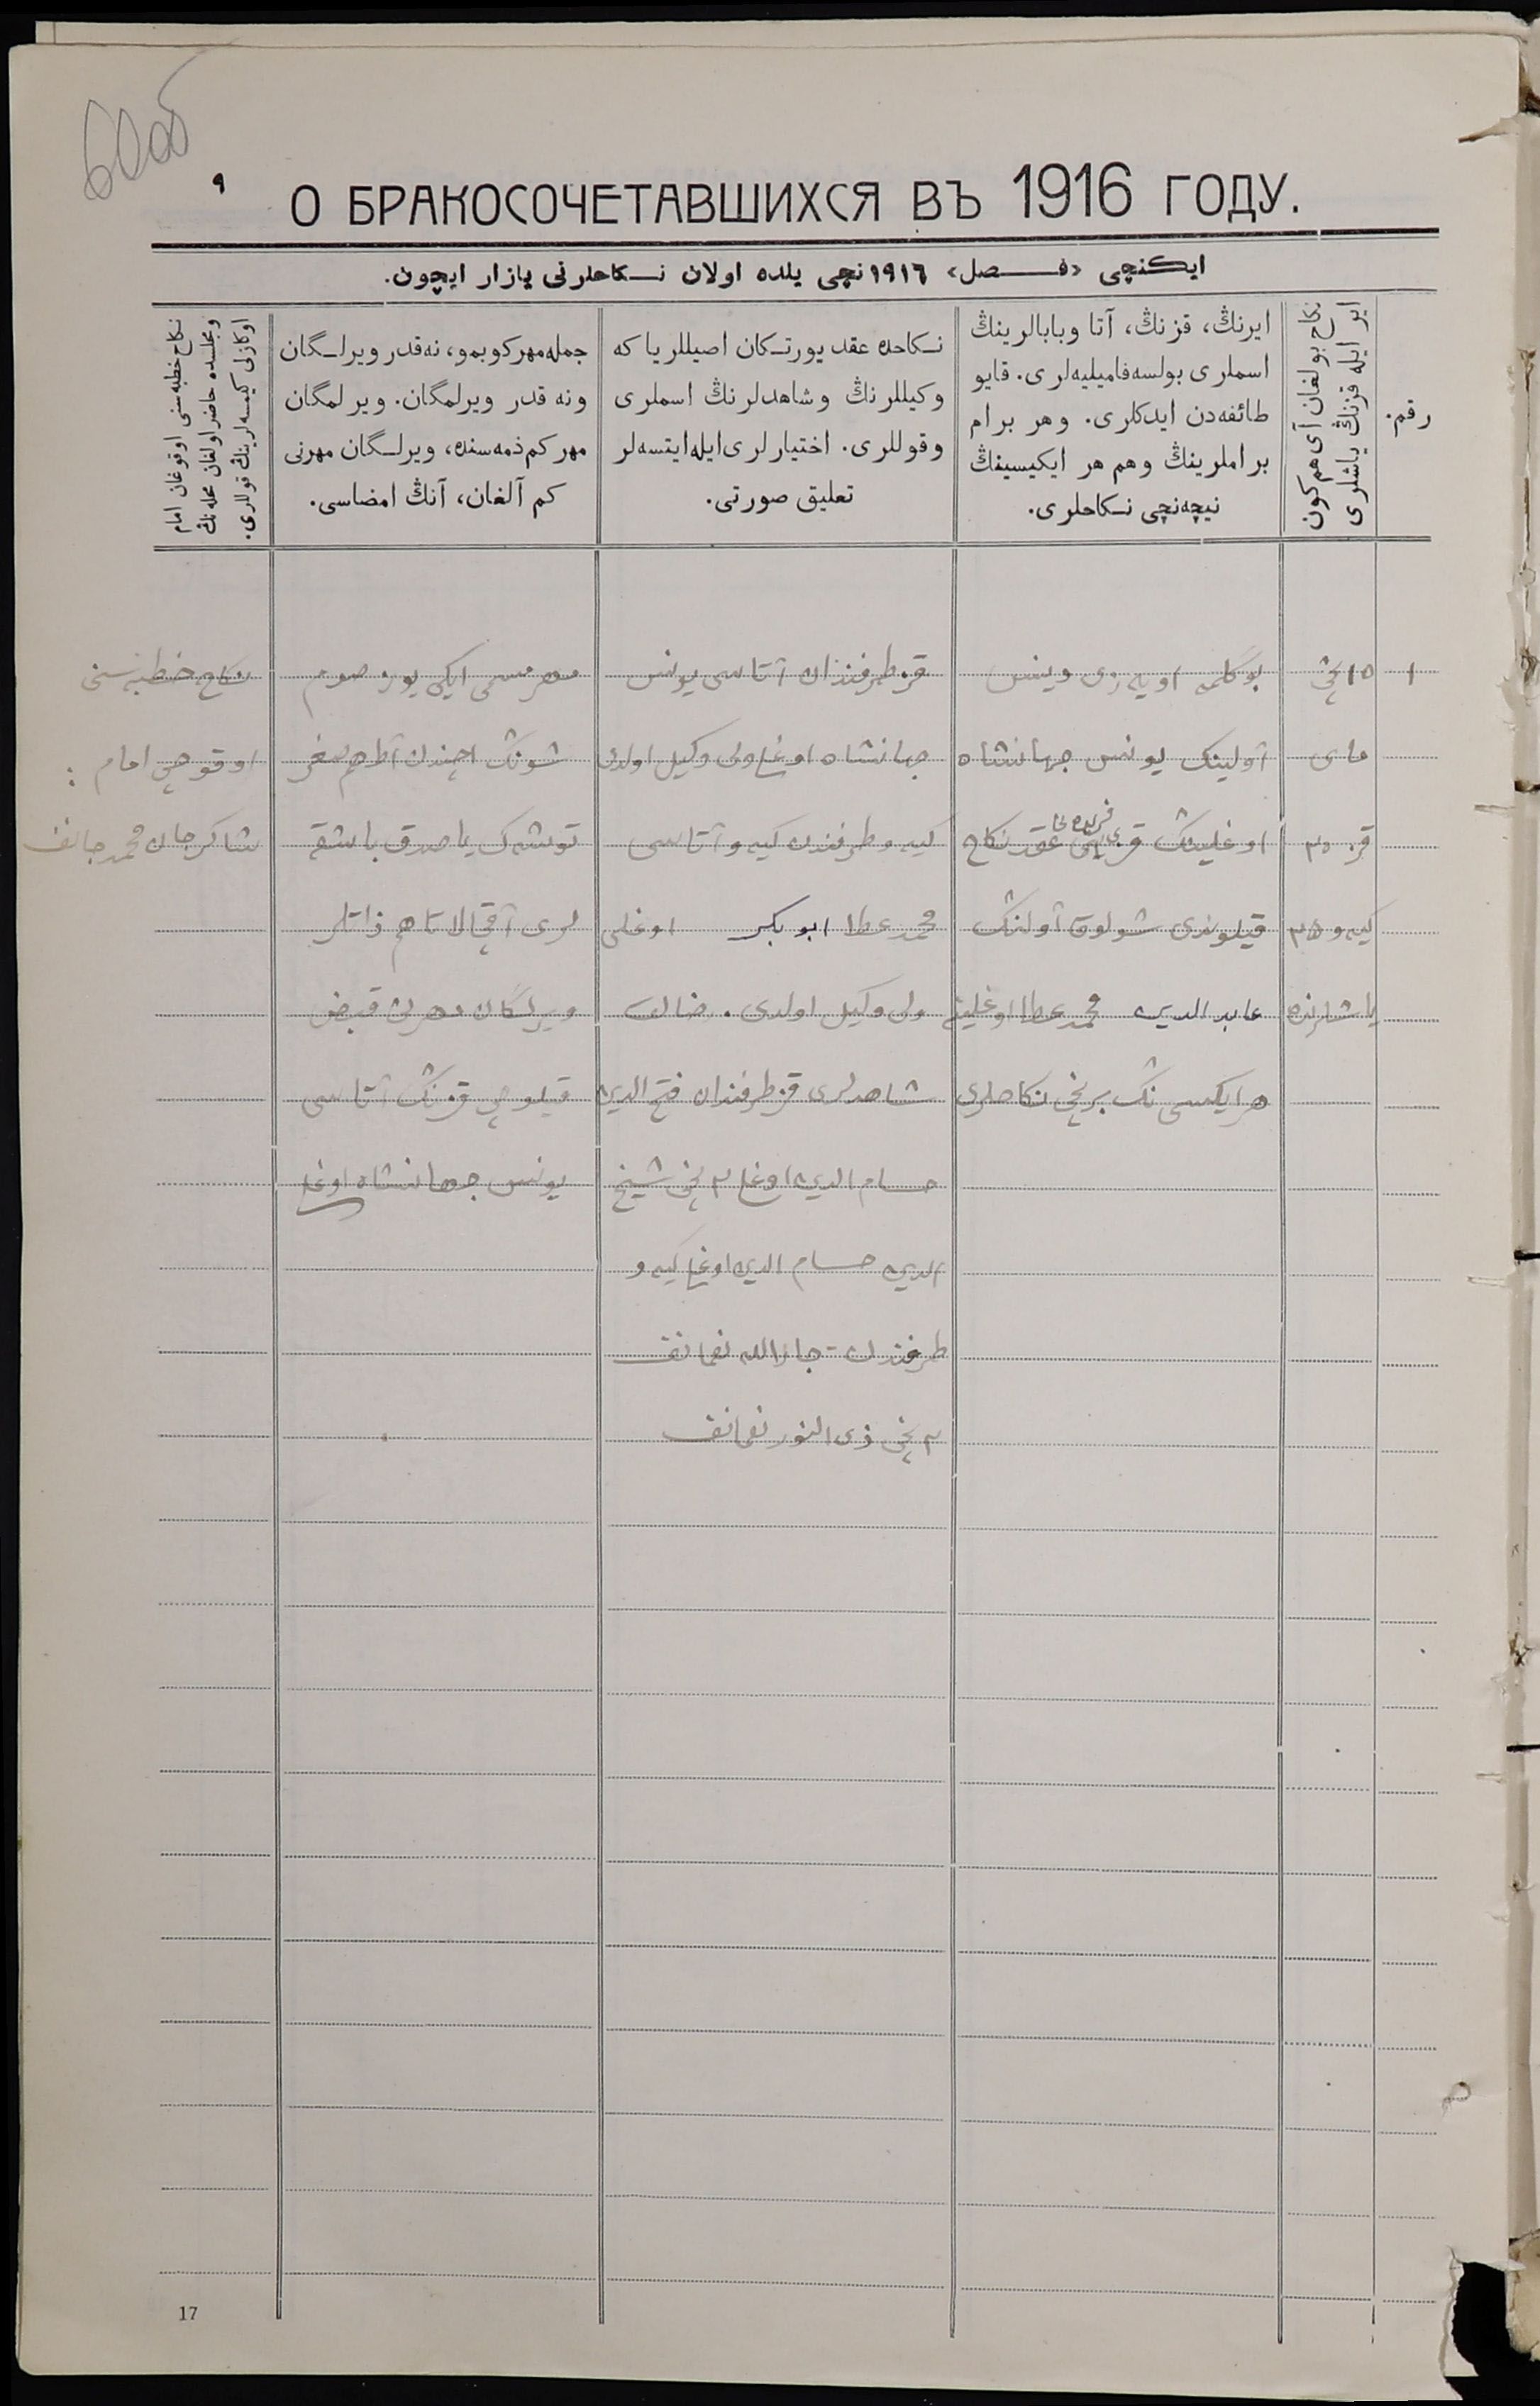 О БРАКОСОЧЕТАВШИХСЯ ВЪ 1916 ГОДУ.
٩
ایکنچی «فـصل» ١٩١٦ نچی یلده اولان نـکاحلرنی یازار ایچون.
رقم.
نکاح بولغان آی هم کون
ایر ایله قزنڭ یاشلری
ایرنڭ، قزنڭ، آتا وبابالرینڭ
اسملری بولسه فامیلیه‌لری. قایو
طائفه‌دن ایدکلری. وهر برام
براملرینڭ وهم هر ایکیسینڭ
نیچه‌نچی نـکاحلری.
نـکاحده عقد یورتـکان اصیللریا که
وکیللرنڭ وشاهدلرنڭ اسملری
وقوللری. اختیارلری ایله ایتسه‌لر
تعلیق صورتی.
جمله‌مهر کوبمو، نه‌قدر ویرلـگان
ونه قدر ویرلمگان. ویرلمگان
مهر کم ذمه‌سنده، ویرلـگان مهرنی
کم آلغان، آنڭ امضاسی.
نکاح خطبه‌سنی اوقوغان امام
ومجلسده حاضر اولغان محله‌نڭ
اوکازلی کیسه‌لرینڭ قوللری.
١
١٥ نچی
مای
قز ٢٠
کیه‌و ٢٥
یاشلرنده
آولینڭ یونس جهانشاه
اوغلینڭ قزی عقد نکاح
قیلوندی شولوق آولنڭ
عابد الدین محمد عطا اوغلینه
هر ایکسی نڭ برنچی نکاحلری
قز طرفندان آتاسی یونس
جهانشاه اوغلی ولی وکیل اولدی
کیه‌و طرفندن کیه‌و آتاسی
محمد عطا ابو بکر اوغلی
ولی وکیل اولدی. رضالق
شاهدلری قز طرفندان فتح الدین
حسام الدین اوغلی ٢ نچی شیخ
الدین حسام الدین اوغلی کیه‌و
طرفندن - جارالله نعمانف
٢ نچی ذی النور نعمانف
مهر مسمی ایکی یوز صوم
شونڭ اچندن
توشه‌ک یاصدق باشقه
لری آقچالاتا هم ذاتلر
ویرلگان مهرنی قبض
قیلوچی قزنڭ آتاسی
یونس جهانشاه اوغلی
نکاح خطبه‌سنی
اوقوچی امام :
شاکرجان محمدجانف
17